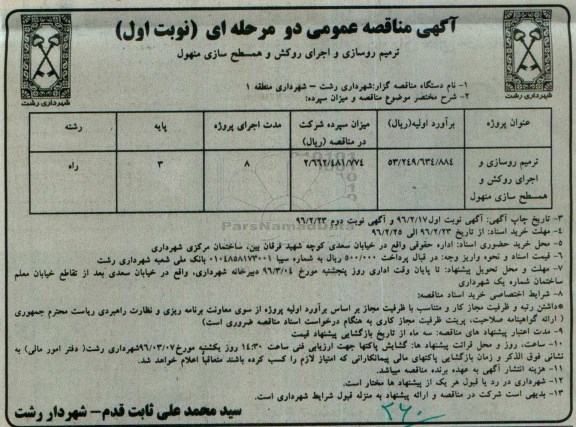 آگهی مناقصه عمومی دو مرحله ای (نوبت اول)
ترمیم روسازی و اجرای روکش و همسطح سازی منهول
شهرداری رشت
شهرداری رشت
۱- نام دستگاه مناقصه گزار: شهرداری رشت – شهرداری منطقه ۱
۲- شرح مختصر موضوع مناقصه و میزان سپرده:
عنوان پروژه
برآورد اولیه(ریال)
میزان سپرده شرکت در مناقصه (ریال)
مدت اجرای پروژه
پایه
رشته
ترمیم روسازی و اجرای روکش و همسطح سازی منهول
۵۳/۲۴۹/۶۳۴/۸۸۴
۲/۶۶۲/۴۸۱/۷۷۴
۸
۳
راه
ParsNamadData
۳- تاریخ چاپ آگهی: آگهی نوبت اول۹۶/۲/۱۷ و آگهی نوبت دوم ۹۶/۲/۲۳
۴- مهلت خرید اسناد: از تاریخ ۹۶/۲/۲۳ الی ۹۶/۲/۲۵
۵- محل خرید حضوری اسناد: اداره حقوقی واقع در خیابان سعدی کوچه شهید فرقان بین، ساختمان مرکزی شهرداری
۶- قیمت اسناد و نحوه واریز وجه: در قبال پرداخت ۵۰۰/۰۰۰ ریال به شماره سیبا ۰۱۰۴۸۵۸۱۷۳۰۰۱ بانک ملی شعبه شهرداری رشت
۷- مهلت و محل تحویل پیشنهاد: تا پایان وقت اداری روز پنجشنبه مورخ ۹۶/۳/۰۴ دبیرخانه شهرداری، واقع در خیابان سعدی بعد از تقاطع خیابان معلم
ساختمان شماره یک شهرداری
۸- شرایط اختصاصی خرید اسناد مناقصه:
*داشتن رتبه و ظرفیت مجاز کار و متناسب با ظرفیت مجاز بر اساس برآورد اولیه پروژه از سوی معاونت برنامه ریزی و نظارت راهبردی ریاست محترم جمهوری
( ارائه گواهینامه صلاحیت، پرینت ظرفیت مجاز کاری به هنگام درخواست اسناد مناقصه ضروری است)
۹- مدت اعتبار پیشنهاد های مناقصه: سه ماه از تاریخ بازگشایی پیشنهاد قیمت
۱۰- ساعت، روز و محل قرائت پیشنهاد ها: گشایش پاکتها جهت ارزیابی فنی ساعت ۱۴:۳۰ روز یکشنبه مورخ۹۶/۰۳/۰۷شهرداری رشت( دفتر امور مالی) به
نشانی فوق الذکر و زمان بازگشایی پاکتهای مالی پیمانکارانی که امتیاز لازم را کسب کرده باشند متعاقبا اعلام خواهد شد.
۱۱- هزینه انتشار آگهی به عهده برنده مناقصه میباشد.
۱۲- شهرداری در رد یا قبول هر یک از پیشنهاد ها مختار است.
۱۳- بدیهی است شرکت در مناقصه و ارائه پیشنهاد به منزله قبول شرایط شهرداری است.
سید محمد علی ثابت قدم – شهردار رشت
۲۶۰